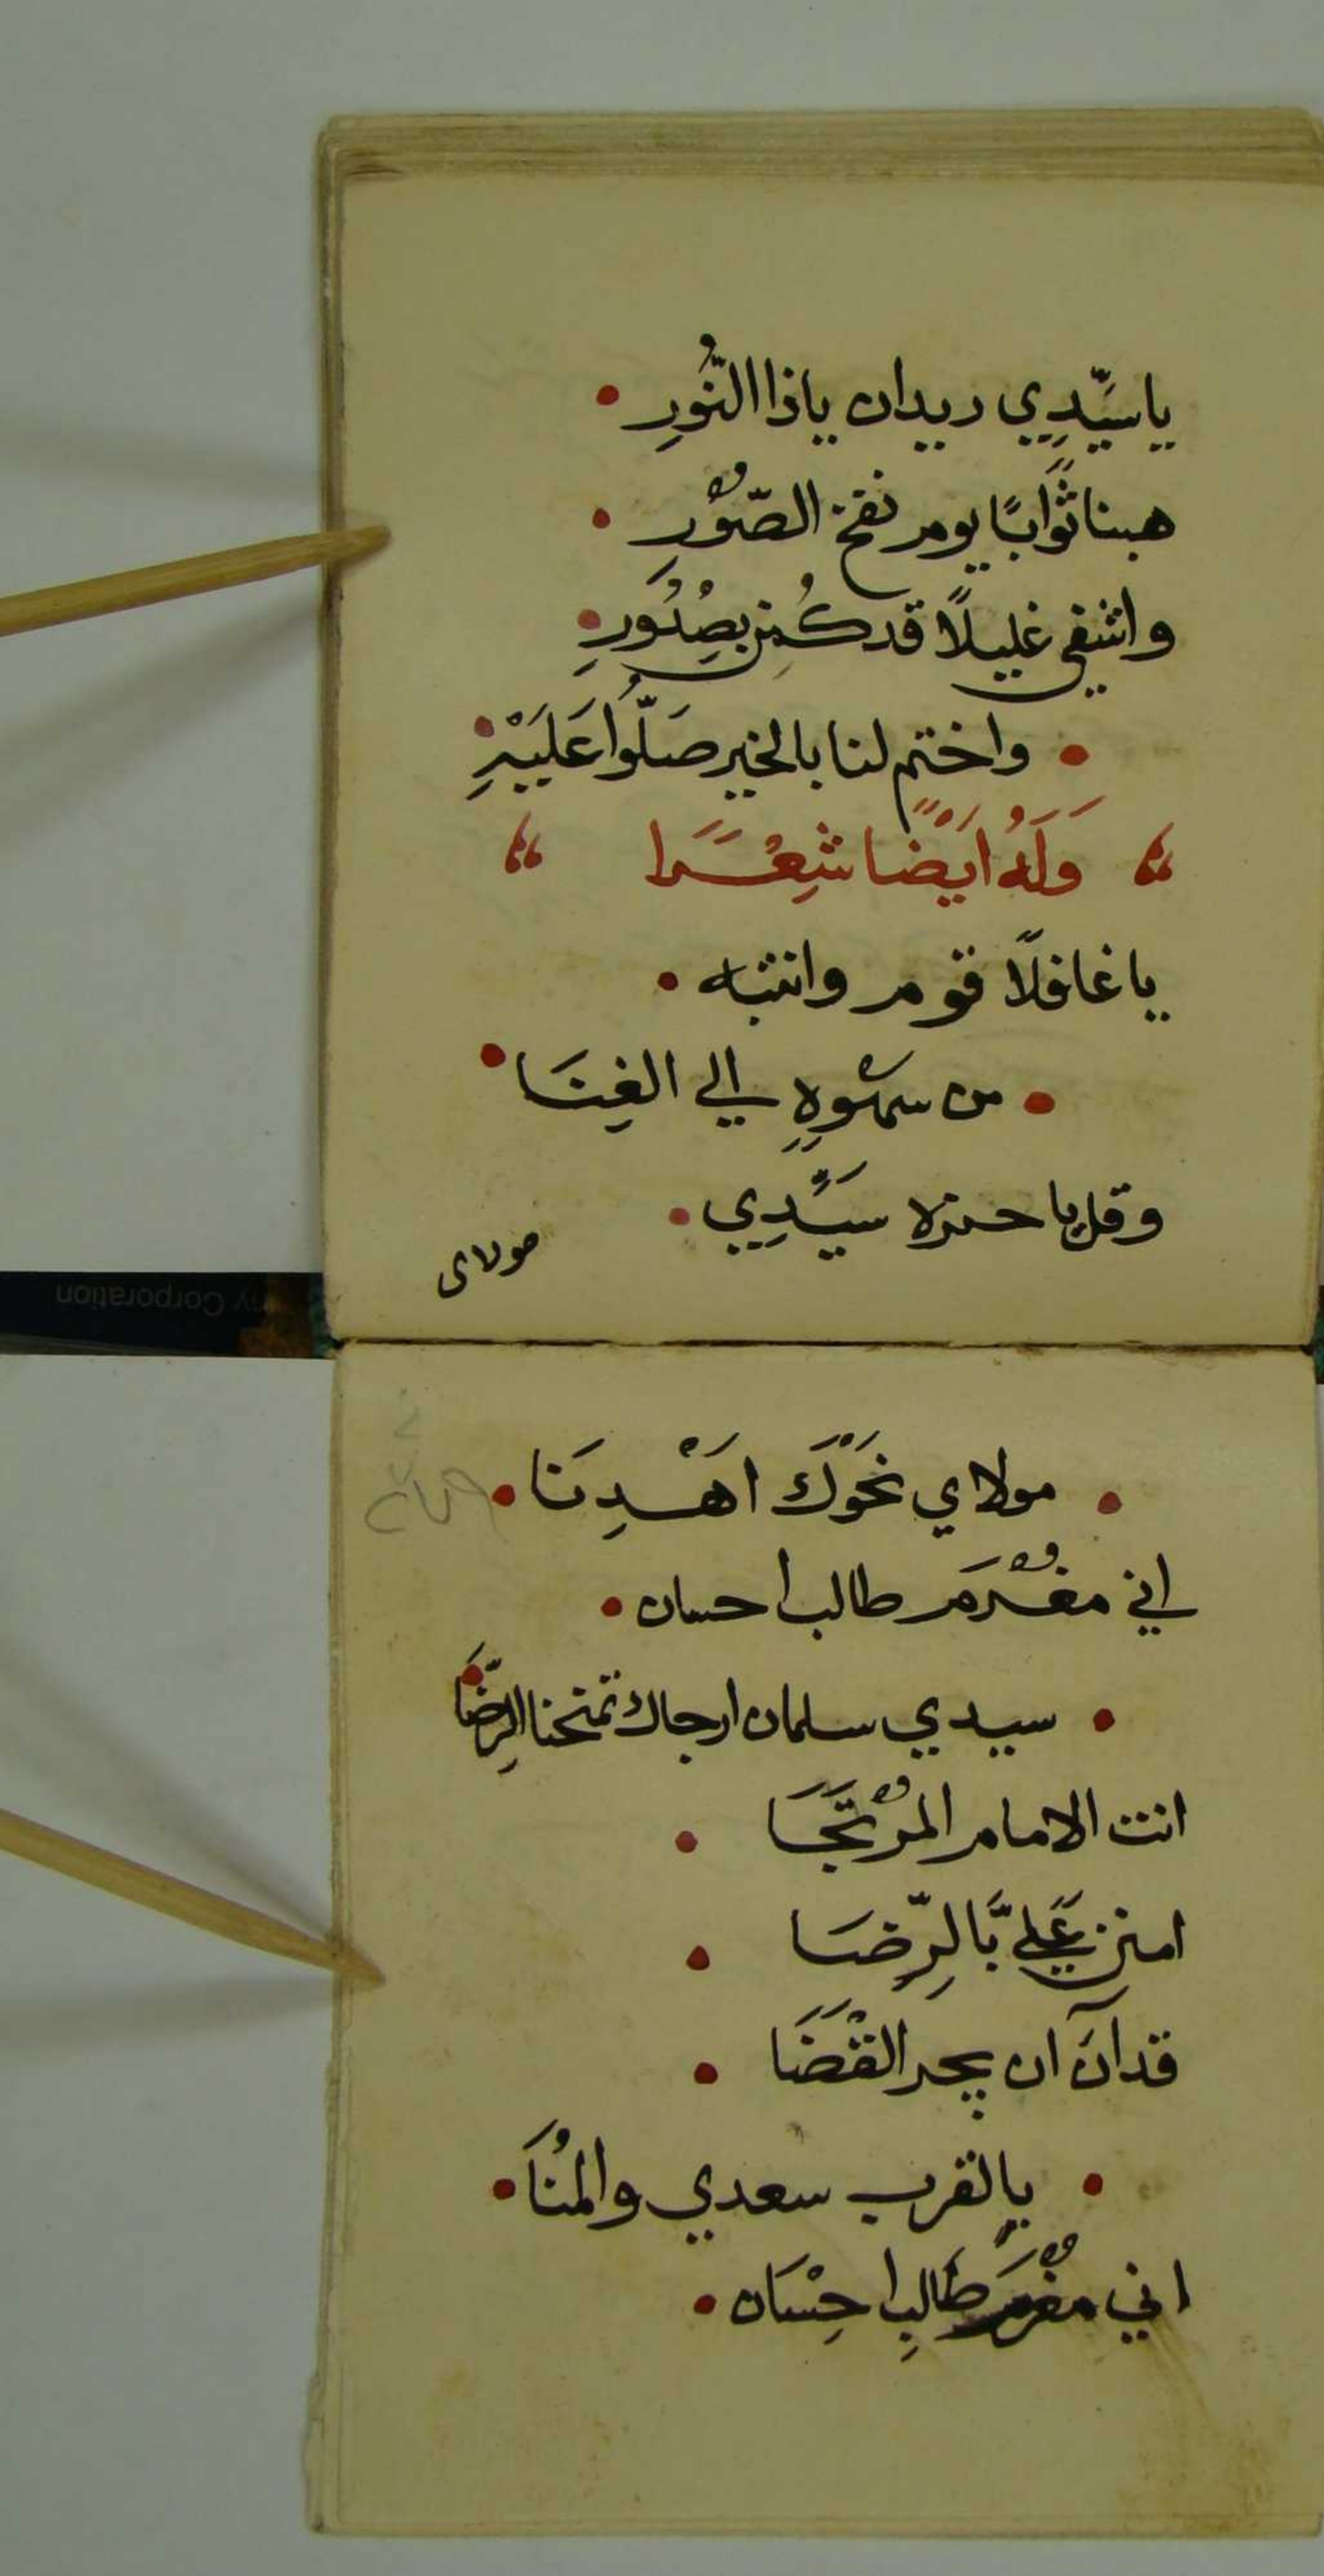 ياسَيِّدِي ريدان ياذا النُّورِ
هبنا ثَوَابًا يوم نفخ الصُّوْرِ
واشفي غليلًا قد كُمِن بصُدُورِ
واختم لنا بالخير صَلُّوا عَلَيْهِ
وَلَهُ اَيْضًا شِعْرًا
يا غافلًا قوم وانتبه
من سَهْوِهِ الي الغِنَا
وقل يا حمزه سَيِّدِي
مولاى
مولاي نَحْوَكَ اَهْدِنَا
اني مُغْرَم طالب احسان
سيدي سلمان ارجاك تمنحنا الرِّضَا
انت الامام المُرْتَجَا
امنن عَلَيَّ بَالرِّضَا
قد آنَ ان يجر القْضَا
بالقرب سعدي والمُنَا
اني مُغْرَم طَالِب احِسْان
ny Corporation